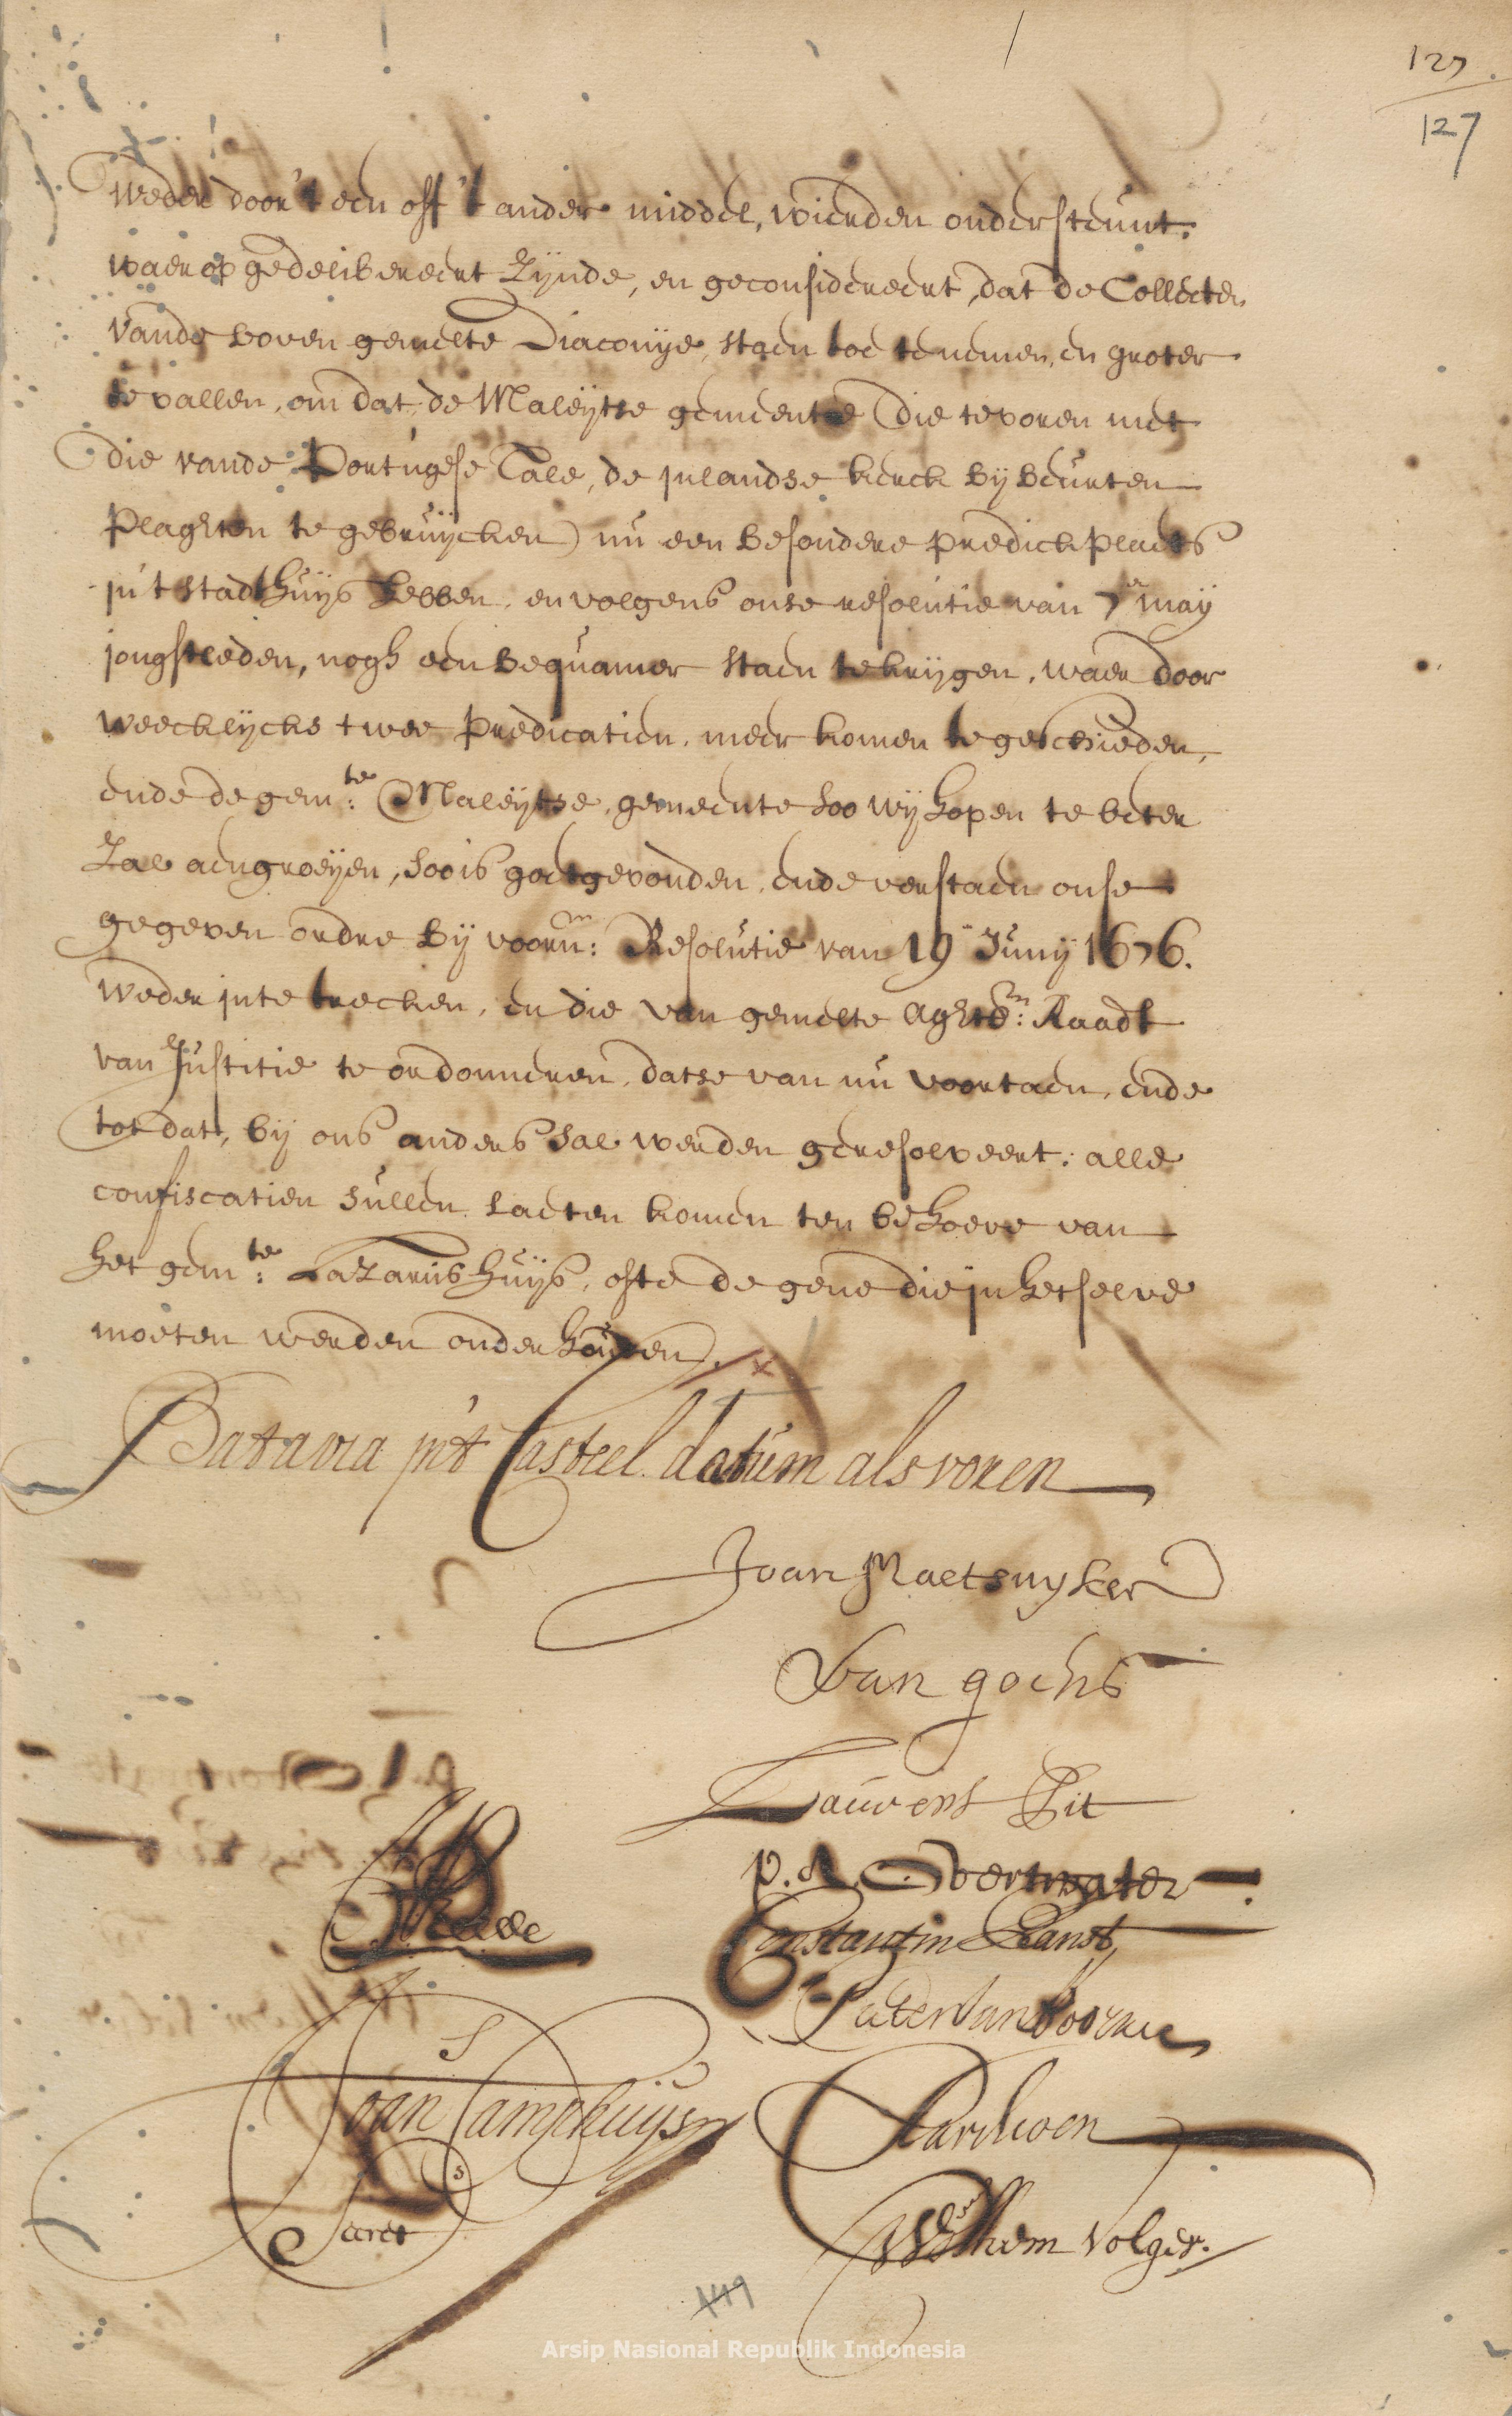 127
127
weder door 't een off 't ander middel, wierden ondersteunt.
waer op gedelibereert zÿnde, en geconsidereert, dat de Collecten
vande boven gemelte Diaconÿe, staen toe te nemen, en groter
te vallen, om dat, de Maleÿtse gemeente (die te voren met
die vande Portugese Tale, de jnlandse kerck bij beurten
plaghten te gebruÿcken) nu een besondere predickplaets
jn 't stadthuÿs hebben, en volgens onse resolutie van 7en maÿ
jongstleden, nogh een bequamer staen te krijgen, waer door
weecklÿcks twee predicatien, meer komen te geschieden,
ende de gemte: Maleÿtse, gemeente soo wij hopen te beter
zal aengroeÿen, soo is goetgevonden, ende verstaen onse
gegeven ordre bij voorn: Resolutie van 19en Junij 1676.
weder jn te trecken, en die van gemelte aghtb: Raadt
van Justitie te ordonneren, datse van nu voortaen, ende
tot dat, bij ons anders sal werden geresolveert, alle
confiscatien sullen laeten komen ten behoeve van
het gemte: Lazarus huÿs, ofte de gene die jn hetselve
moeten werden onderhouden.
Batavia jn't Casteel datum als voren
Joan Maetsuyker
Van goens
Lauwens Pit
P. A. Overtwater
Constantin Ranst
Pieter van Hoorn
Parvé
Willem Volger.
Joan Camphuijs
Secret
449
Arsip Nasional Republik Indonesia